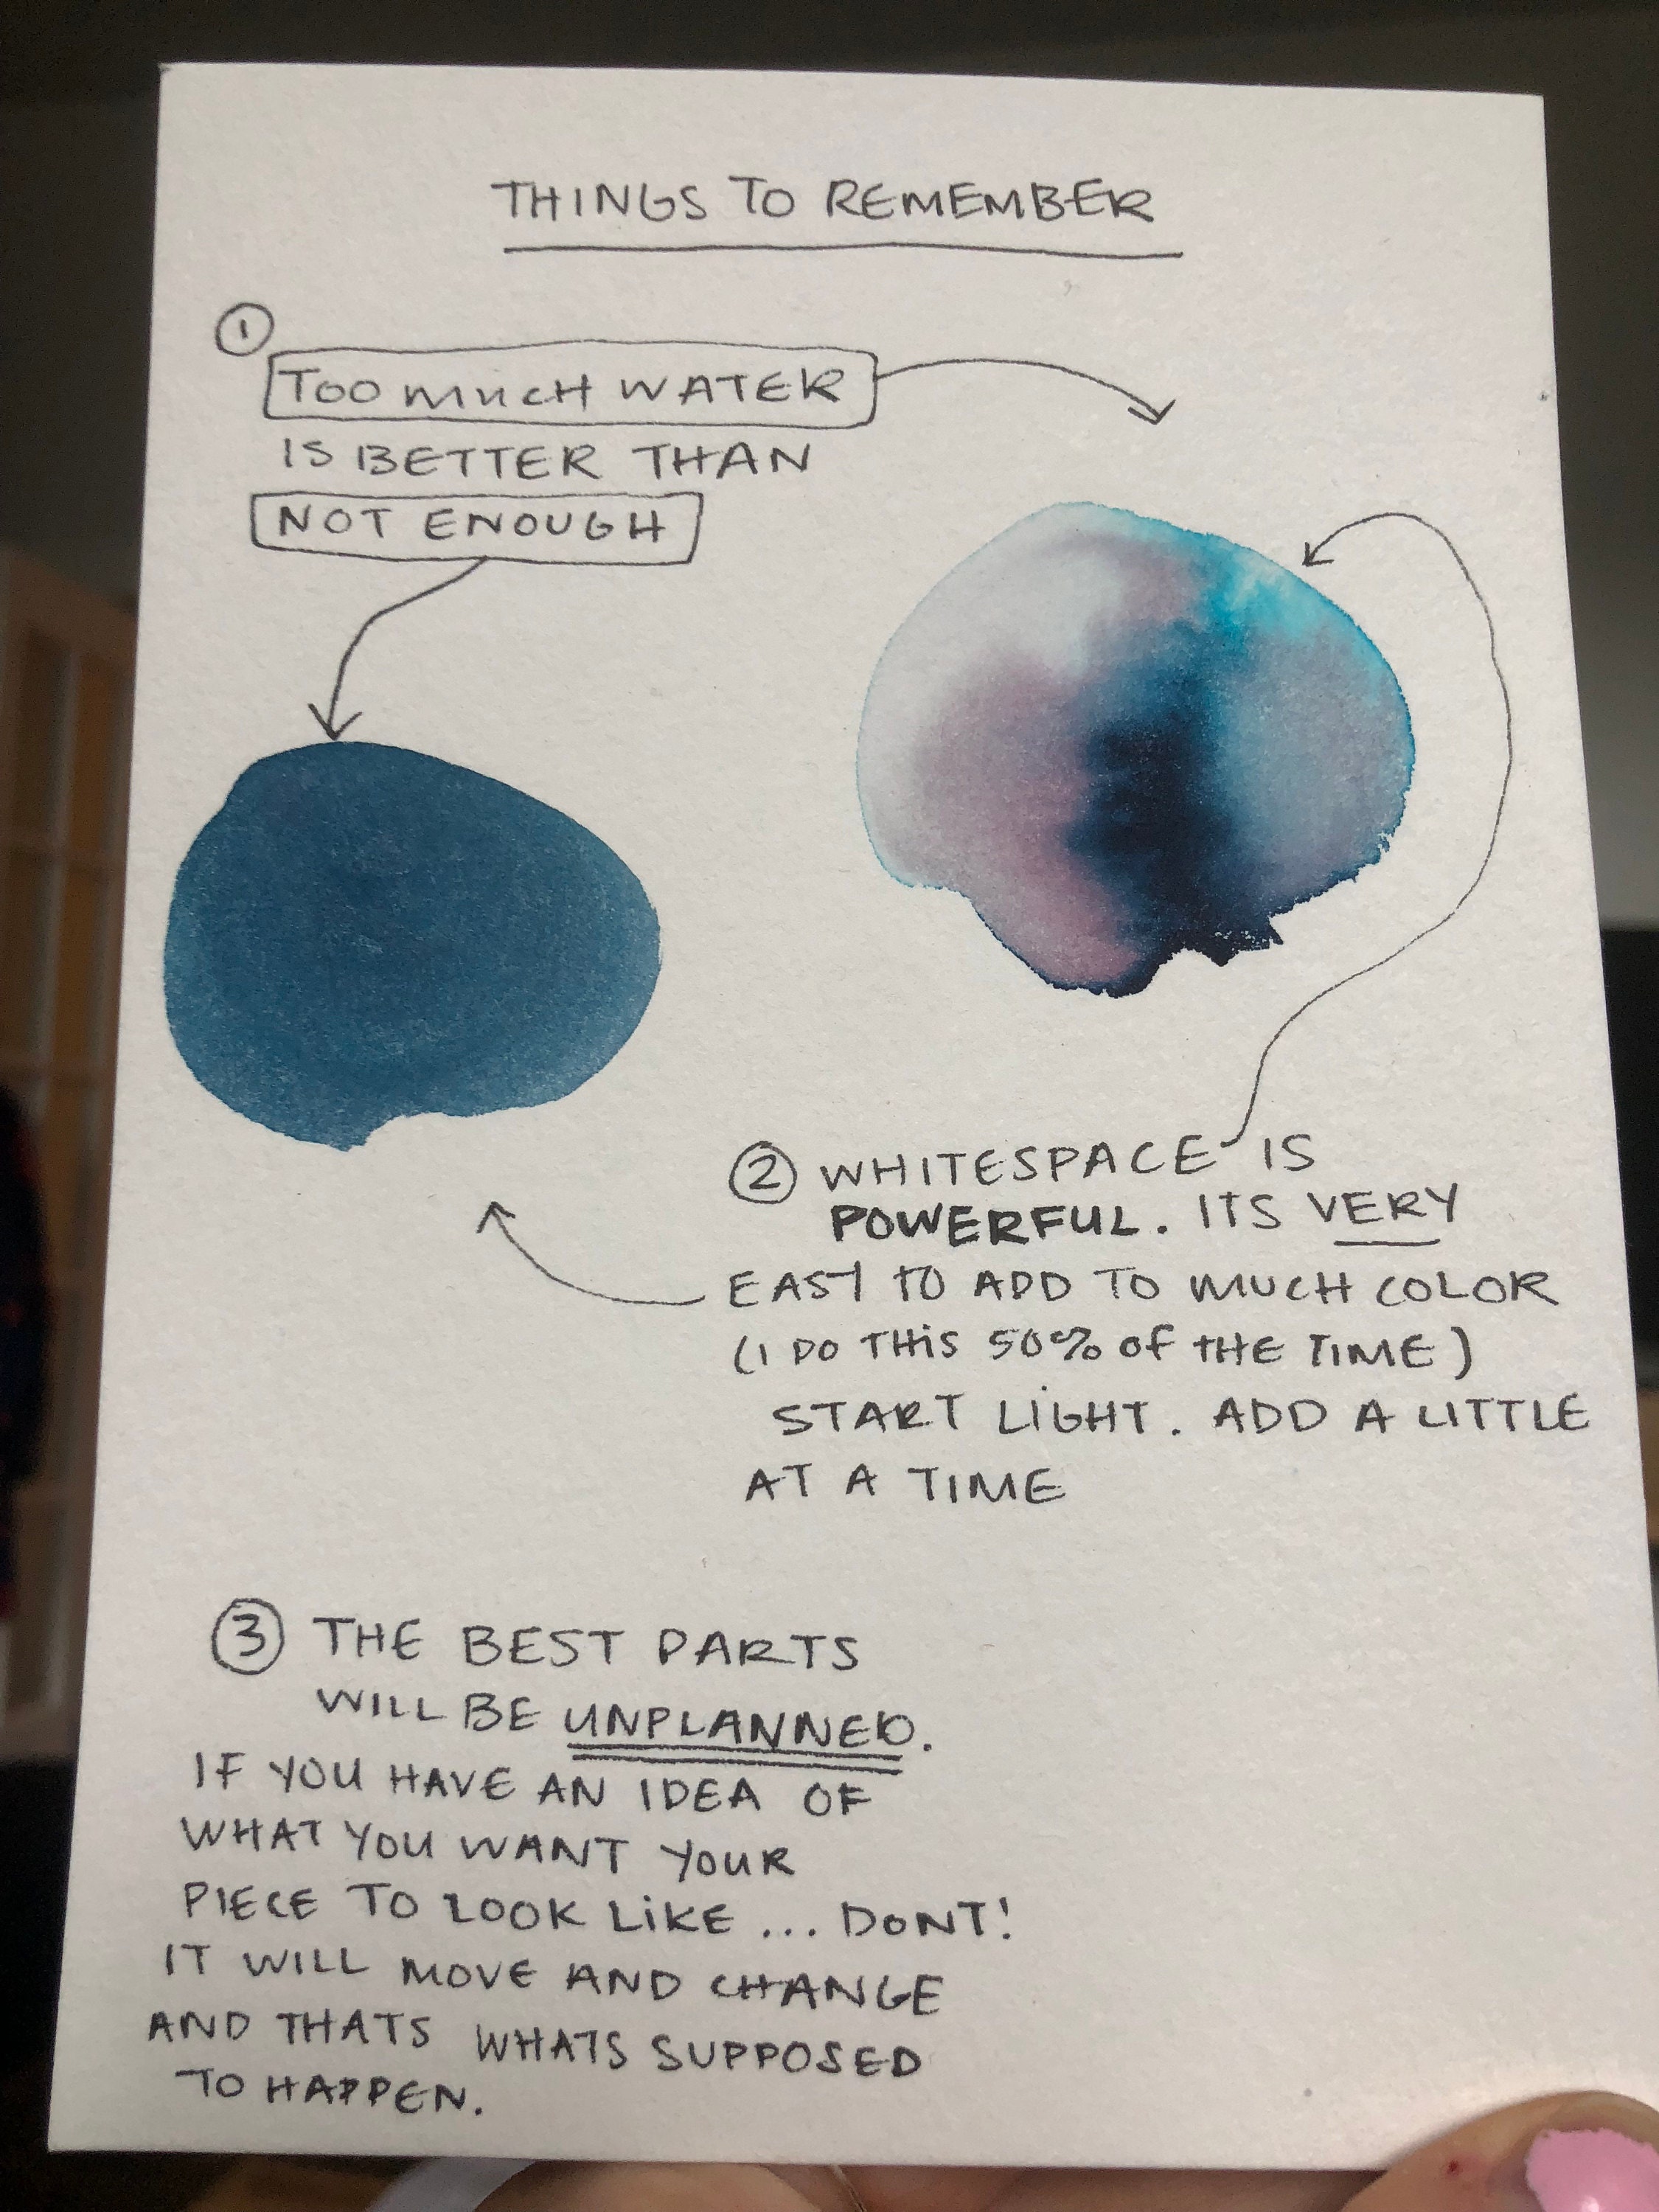 THINGS TO REMEMBER
1
TOO MUCH WATER
IS BETTER THAN
NOT ENOUGH
2 WHITESPACE IS
POWERFUL. ITS VERY
EASY TO ADD TO MUCH COLOR
(I DO THIS 50% OF THE TIME)
START LIGHT. ADD A LITTLE
AT A TIME
3 THE BEST PARTS
WILL BE UNPLANNED.
IF YOU HAVE AN IDEA OF
WHAT YOU WANT YOUR
PIECE TO LOOK LIKE ... DONT!
IT WILL MOVE AND CHANGE
AND THATS WHATS SUPPOSED
TO HAPPEN.